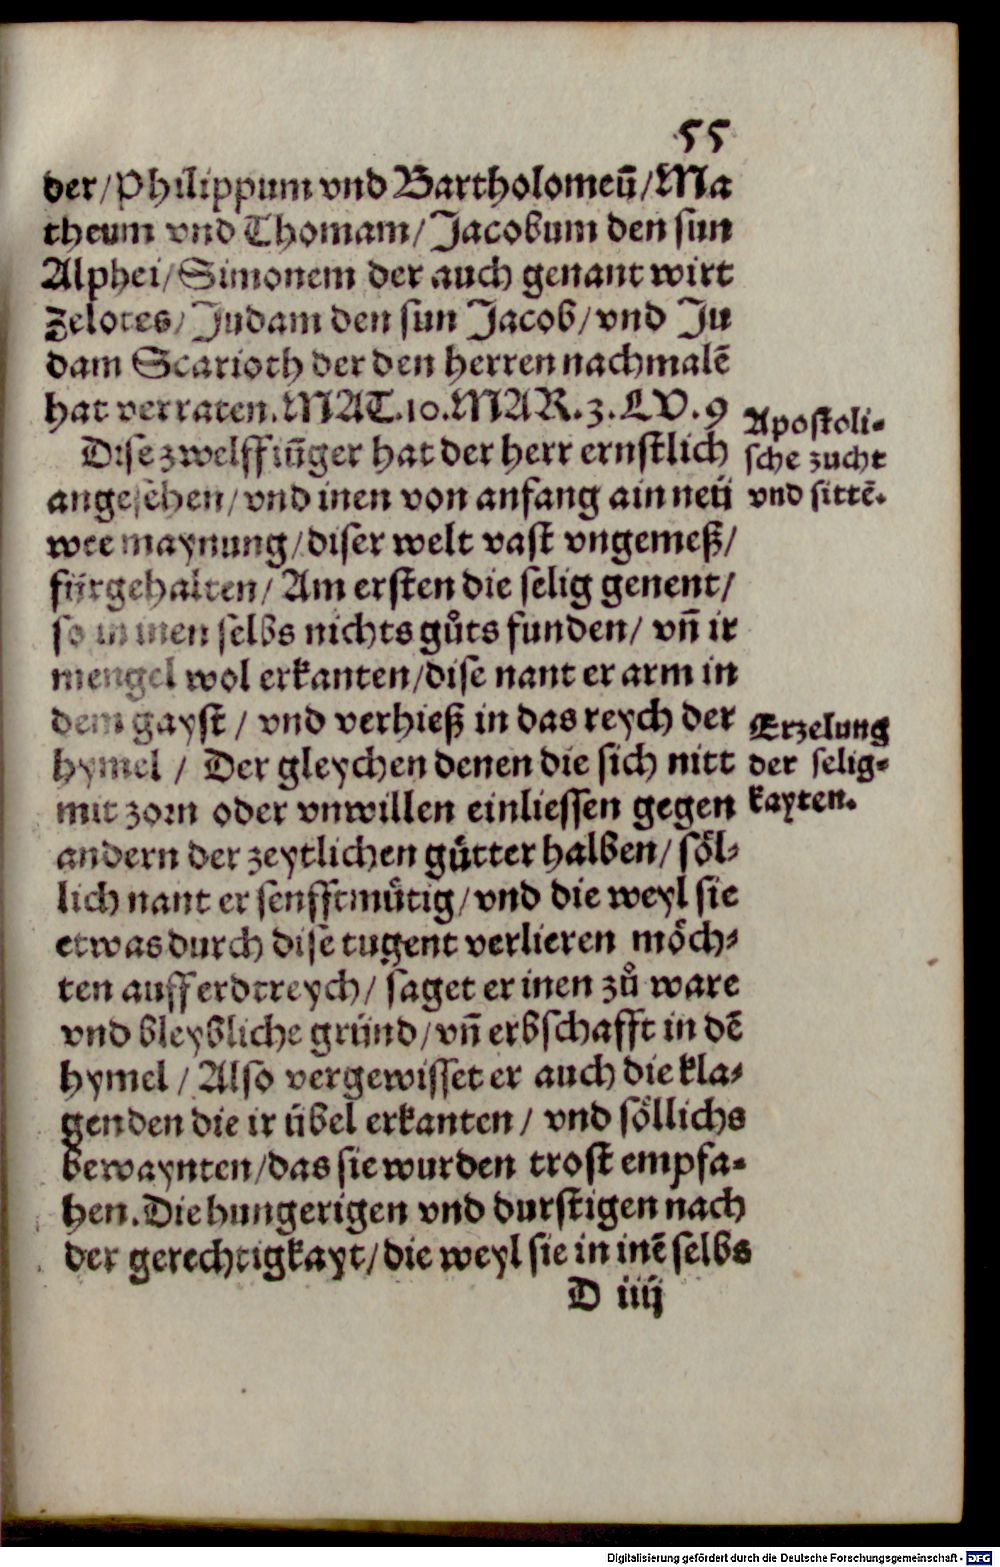 55
der/Philippum vnd Bartholomeū/Ma
theum vnd Thomam/Jacobum den sun
Alphei/Simonem der auch genant wirt
Zelotes/Judam den sun Jacob/vnd Ju
dam Scarioth der den herren nachmalē
hat verraten.MAT.10.MAR.3.LV.9
Dise zwelff iūger hat der herr ernstlich
angesehen/vnd inen von anfang ain neü
wee maynung/diser welt vast vngemeß/
fürgehalten/Am ersten die selig genent/
so in inen selbs nichts gůts funden/vn̄ ir
mengel wol erkanten/dise nant er arm in
dem gayst/vnd verhieß in das reych der
hymel/Der gleychen denen die sich nitt
mit zorn oder vnwillen einliessen gegen
andern der zeytlichen gütter halben/söl-
lich nant er senfftmütig/vnd die weyl sie
etwas durch dise tugent verlieren möch-
ten auff erdtreych/saget er inen zů ware
vnd bleybliche gründ/vn̄ erbschafft in dē
hymel/Also vergewisset er auch die kla-
genden die ir übel erkanten/vnd söllichs
bewaynten/das sie wurden trost empfa-
hen.Die hungerigen vnd durstigen nach
der gerechtigkayt/die weyl sie in inē selbs
D iiij
Apostoli-
sche zucht
vnd sittē.
Erzelung
der selig-
kayten.
Digitalisierung gefördert durch die Deutsche Forschungsgemeinschaft - DFG